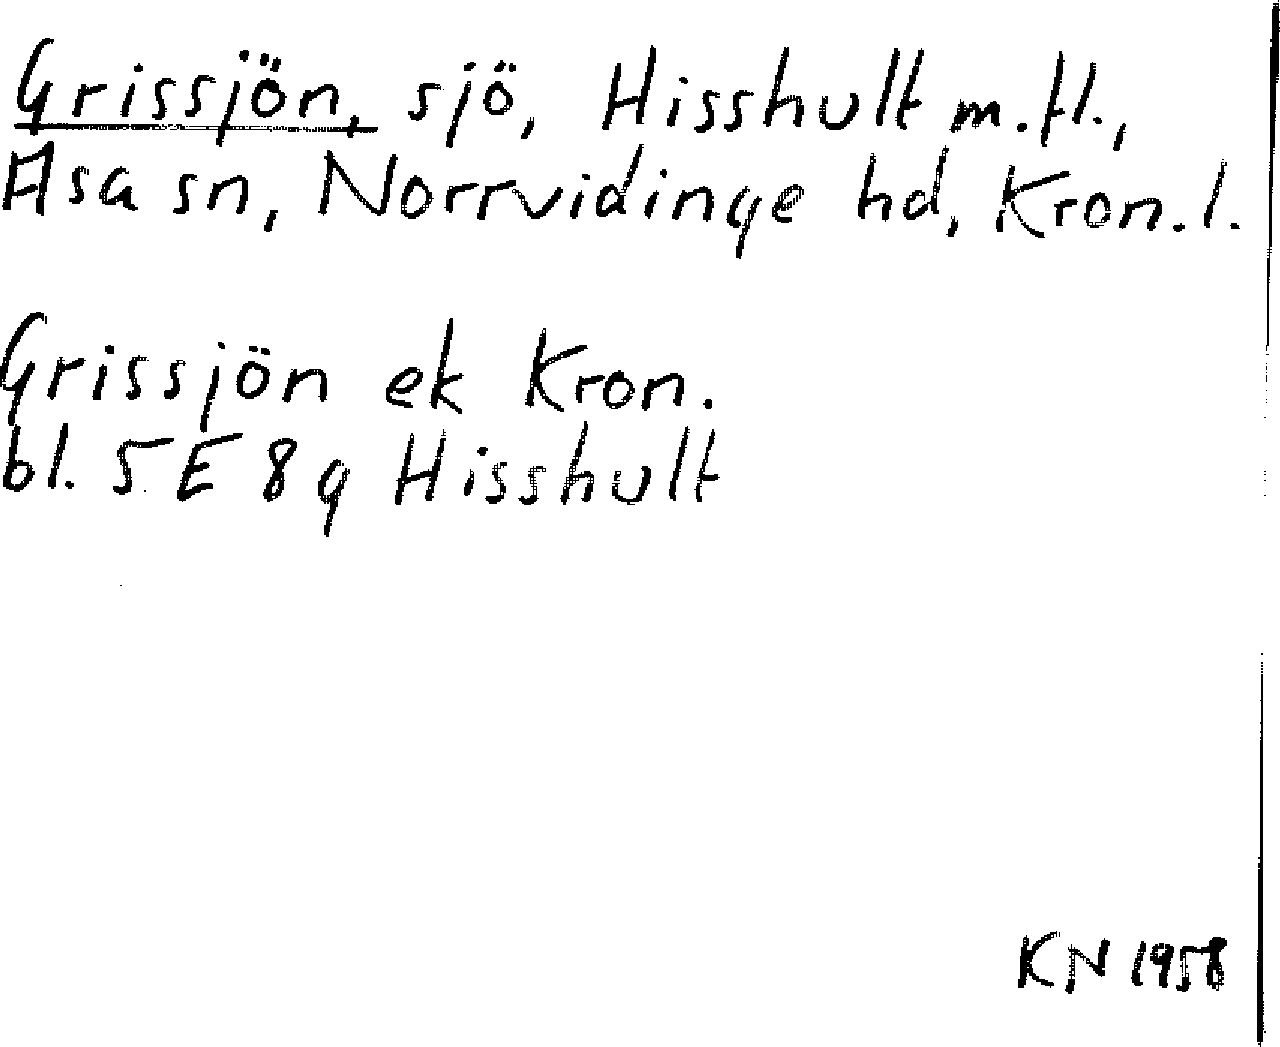 Grissjön, sjö, Hisshult m.fl.,
Asa sn, Norrvidinge hd, Kron.l.
Grissjön ek Kron.
bl. 5E 8g Hisshult
KN 1958